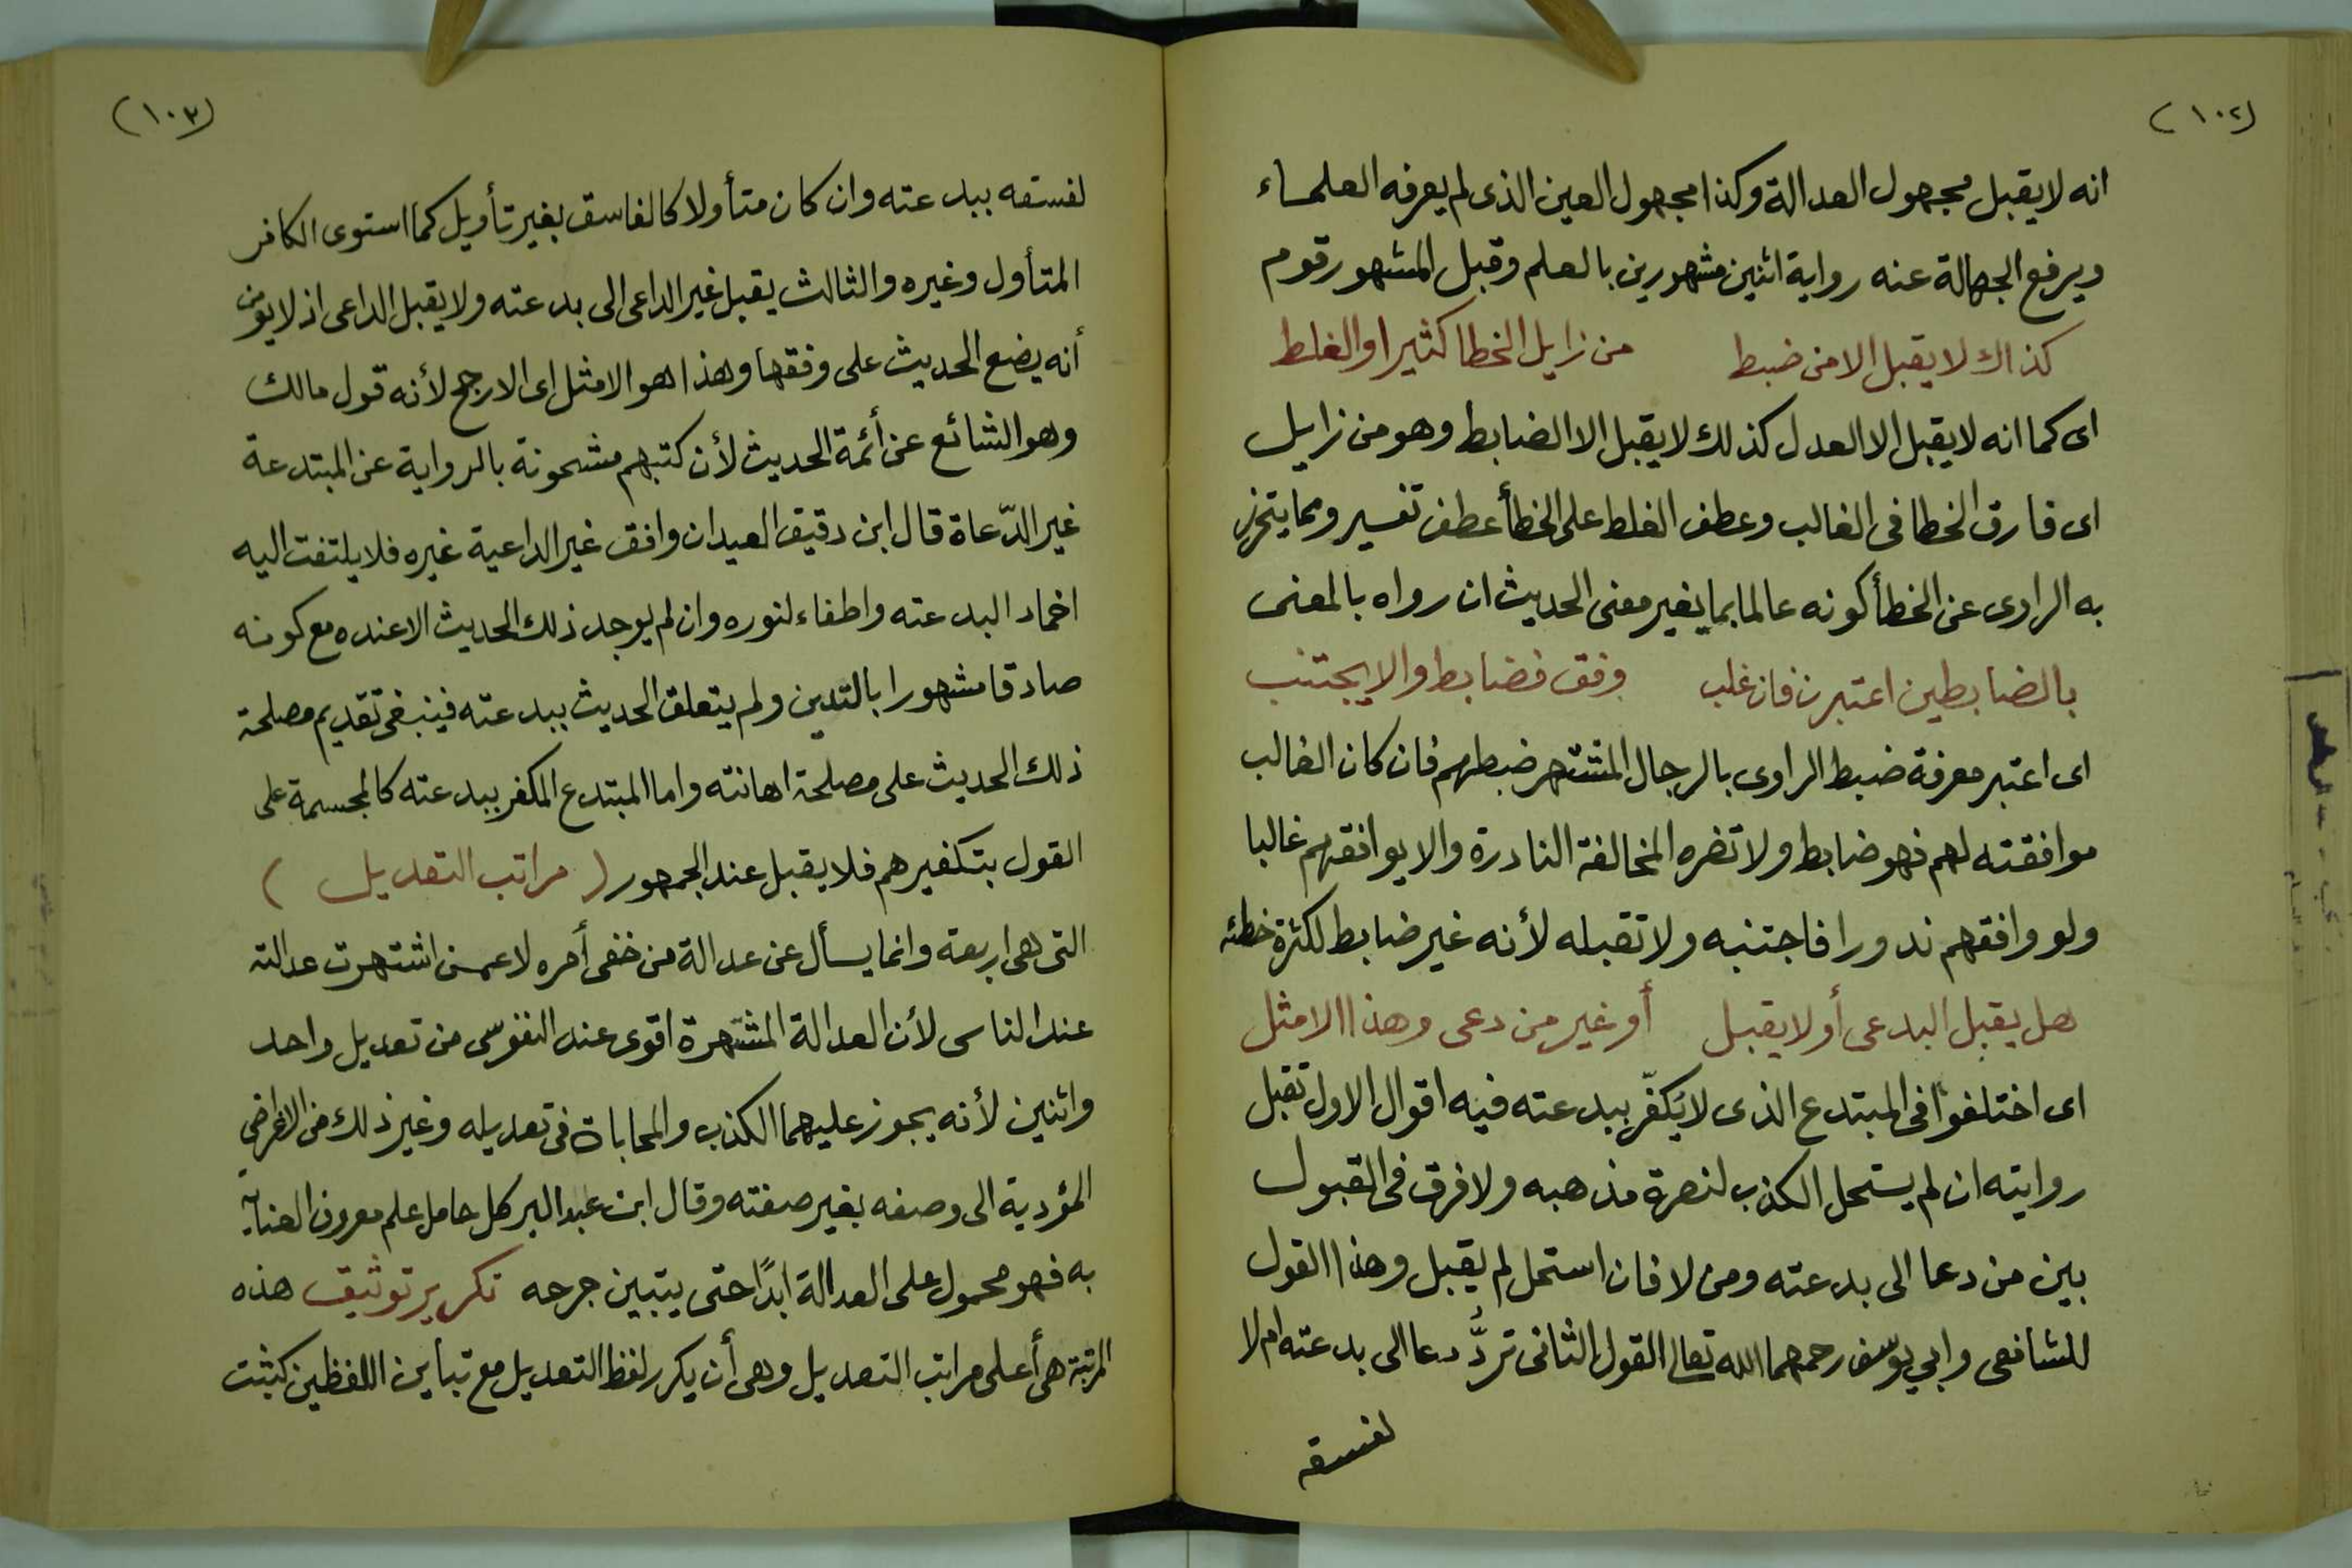 (١٠٢)
انه لا يقبل مجهول العدالة وكذا مجهول العين الذى لم يعرفه العلماء
ويرفع الجهالة عنه رواية اثنين مشهورين بالعلم وقبل المشهور قوم
كذاك لا يقبل الا من ضبط من زايل الخطا كثيرا والغلط
اى كما انه لا يقبل الا العدل كذلك لا يقبل الا الضابط وهو من زايل
اى فارق الخطا فى الغالب وعطف الغلط على الخطأ عطف تفسير ومما يتحرز
به الراوى عن الخطأ كونه عالما بما يغير معنى الحديث ان رواه بالمعنى
بالضابطين اعتبرن فان غلب وفق فضابط والا يجتنب
اى اعتبر معرفة ضبط الراوى بالرجال المشتهر ضبطهم فان كان الغالب
موافقته لهم فهو ضابط ولا تضره المخالفة النادرة والا يوافقهم غالبا
ولو وافقهم ندورا فاجتنبه ولا تقبله لأنه غير ضابط لكثرة خطئه
هل يقبل البدعى أو لا يقبل أو غير من دعى وهذا الامثل
اى اختلفوا فى المبتدع الذى لا يكفّر ببدعته فيه اقوال الاول تقبل
روايته ان لم يستحل الكذب لنصرة مذهبه ولا فرق فى القبول
بين من دعا الى بدعته ومن لا فان استحل لم يقبل وهذا القول
للشافعى وابي يوسف رحمهما الله تعالى القول الثانى تردّ دعا الى بدعته ام لا
لفسقه
(١٠٣)
لفسقه ببدعته وان كان متأولا كالفاسق بغير تأويل كما استوى الكافر
المتأول وغيره والثالث يقبل غير الداعى الى بدعته ولا يقبل الداعى اذ لا يؤمن
أنه يضع الحديث على وفقها وهذا هو الامثل اى الارجح لأنه قول مالك
وهو الشائع عن أئمة الحديث لأن كتبهم مشحونة بالرواية عن المبتدعة
غير الدّعاة قال ابن دقيق العيد ان وافق غير الداعية غيره فلا يلتفت اليه
اخماد البدعته واطفاء لنوره وان لم يوجد ذلك الحديث الا عنده مع كونه
صادقا مشهورا بالتدين ولم يتعلق الحديث ببدعته فينبغى تقديم مصلحة
ذلك الحديث على مصلحة اهانته واما المبتدع المكفر ببدعته كالمجسمة على
القول بتكفيرهم فلا يقبل عند الجمهور (مراتب التعديل)
التى هى اربعة وانما يسأل عن عدالة من خفى أمره لا عمن اشتهرت عدالته
عند الناس لأن العدالة المشتهرة اقوى عند النفوس من تعديل واحد
واثنين لأنه يجوز عليهما الكذب والمحاباة فى تعديله وغير ذلك من الاغراض
المؤدية الى وصفه بغير صفته وقال ابن عبد البر كل حامل علم معروف العناية
به فهو محمول على العدالة ابدًا حتى يتبين جرحه تكرير توثيق هذه
المرتبة هى أعلى مراتب التعديل وهى أن يكرر لفظ التعديل مع تباين اللفظين كثبت